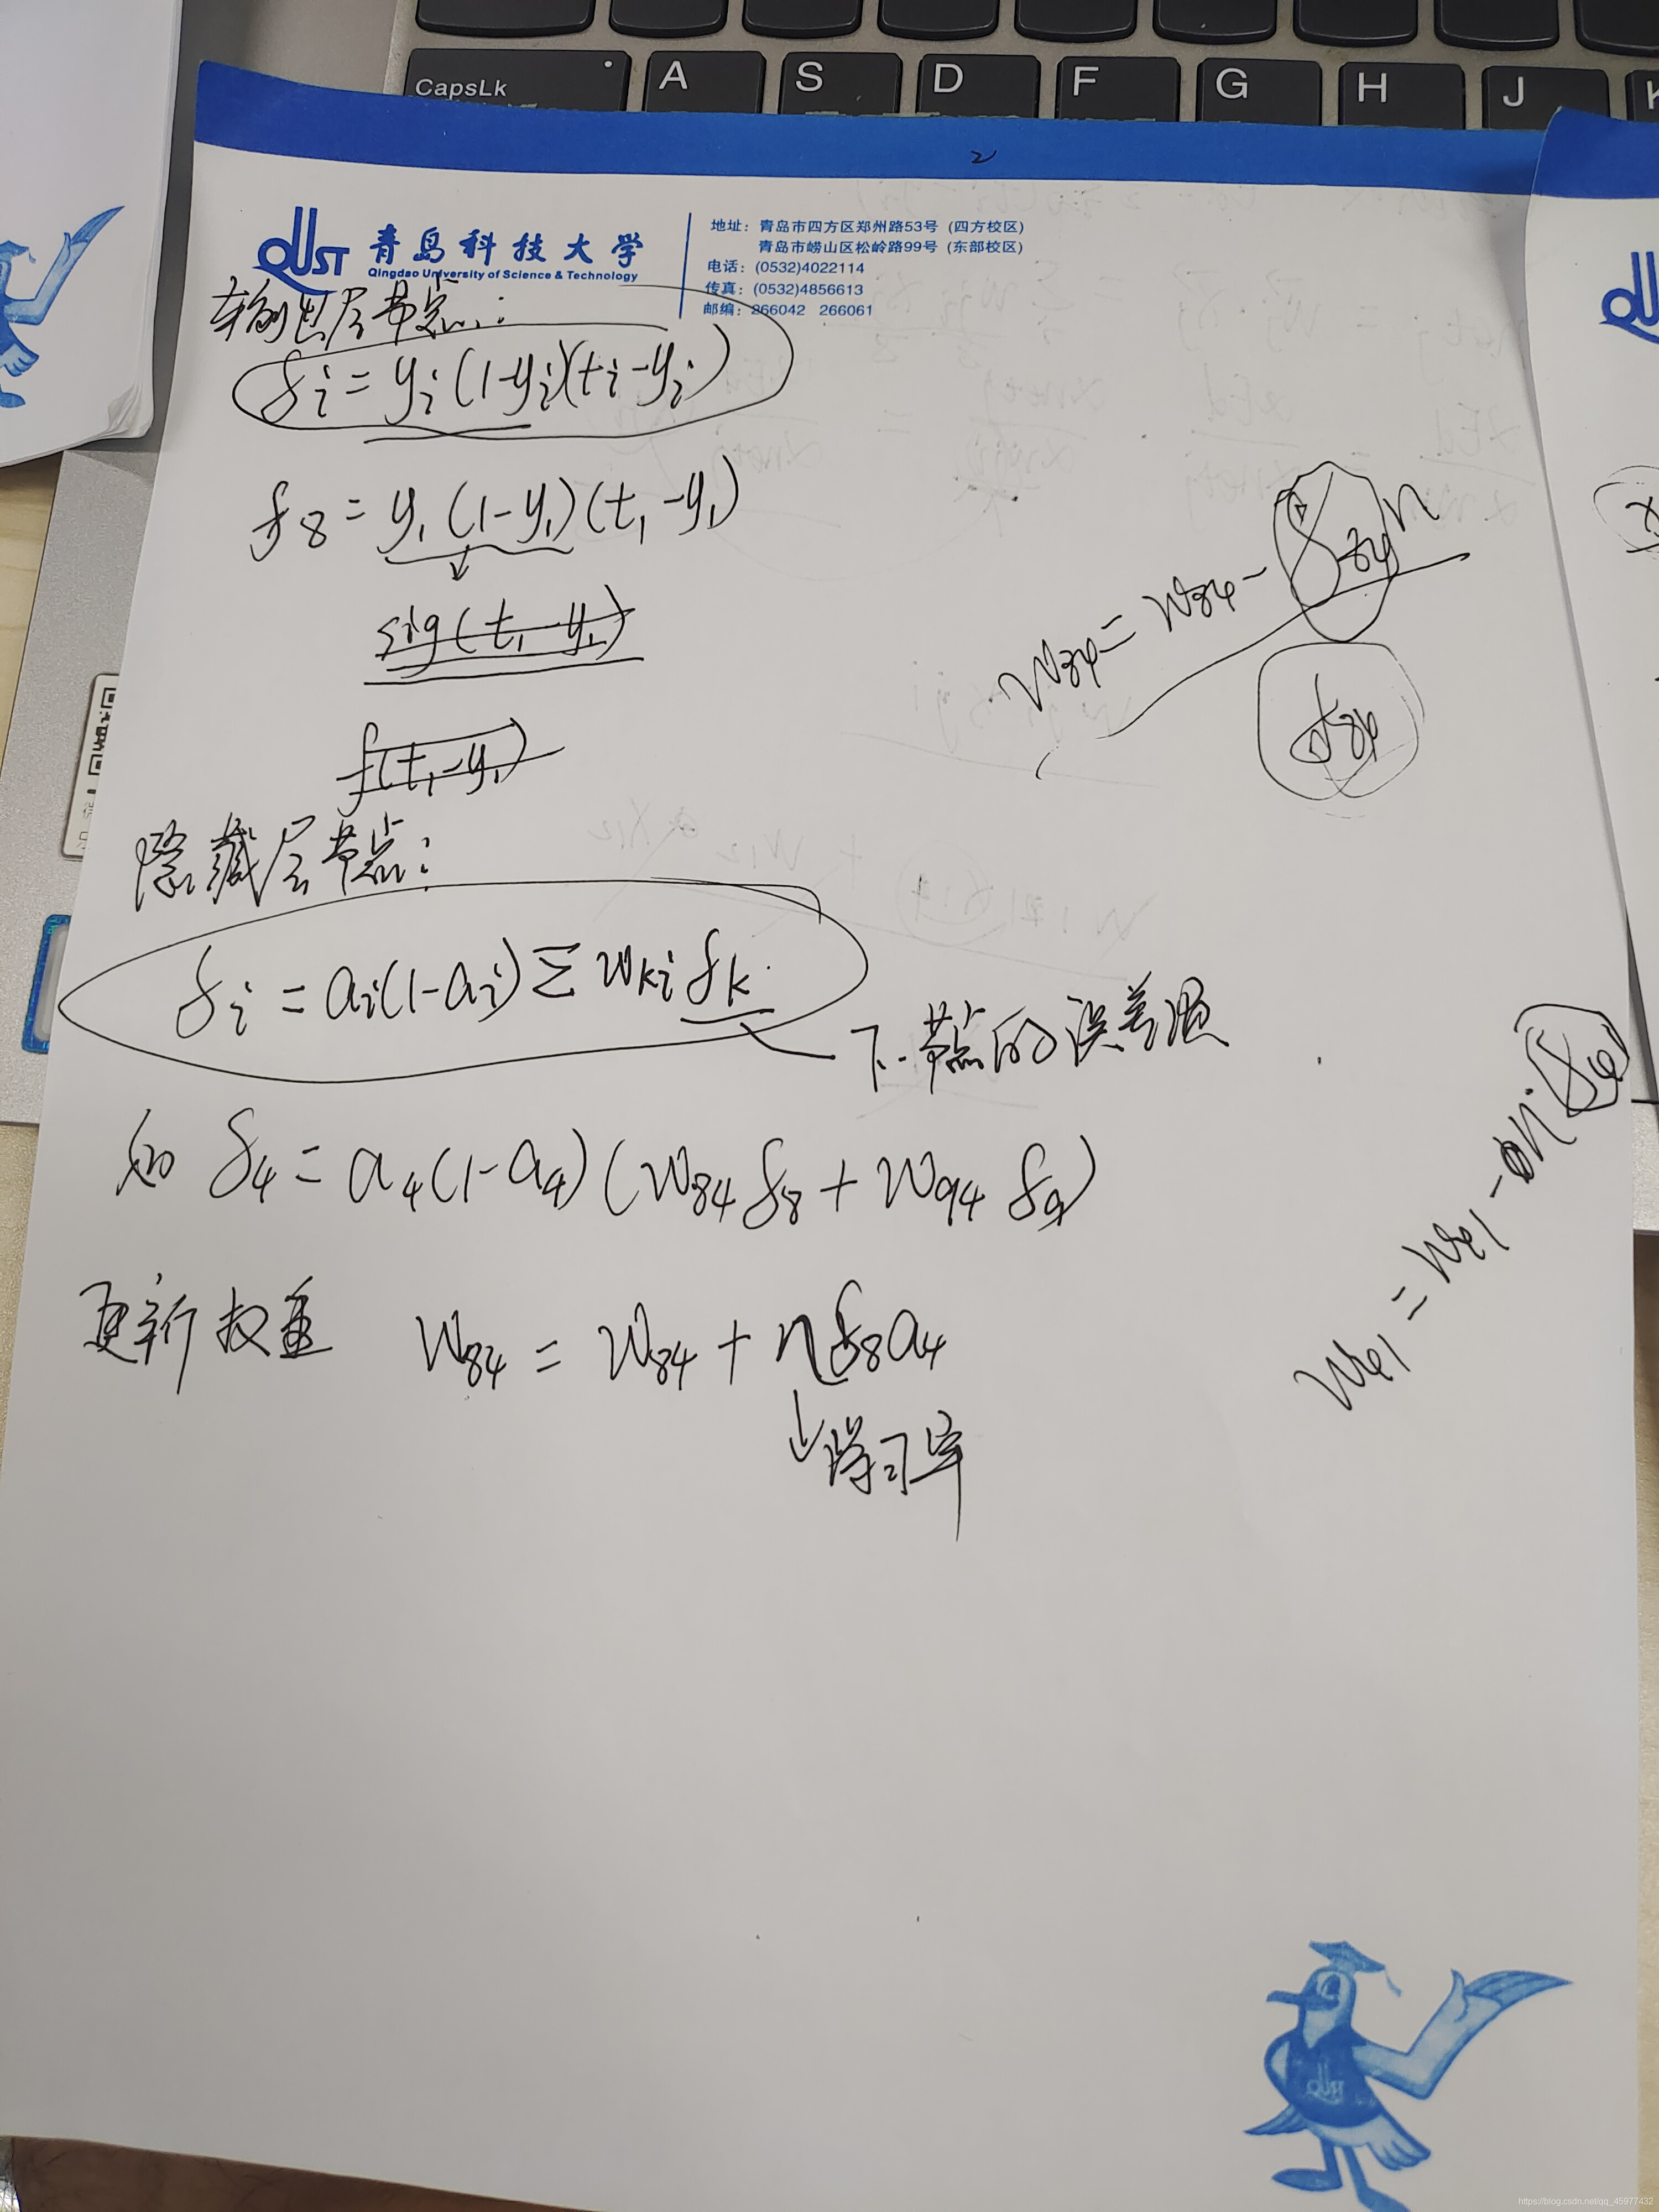 CapsLk A S D F G H J K
2
QUST 青岛科技大学
Qingdao University of Science & Technology
地址：青岛市四方区郑州路53号 (四方校区)
青岛市崂山区松岭路99号 (东部校区)
电话：(0532)4022114
传真：(0532)4856613
邮编：266042 266061
输出层节点：
δi = yi(1-yi)(ti-yi)
δ8 = y1(1-y1)(t1-y1)
sig(t1-y1)
f(t1-y1)
W84 = W84 -
隐藏层节点：
δi = ai(1-ai) Σ wki δk
下一节点的误差项
如 δ4 = a4(1-a4)(W84 δ8 + W94 δ9)
更新权重 W84 = W84 + η δ8 a4
学习率
QUST
https://blog.csdn.net/qq_45977432